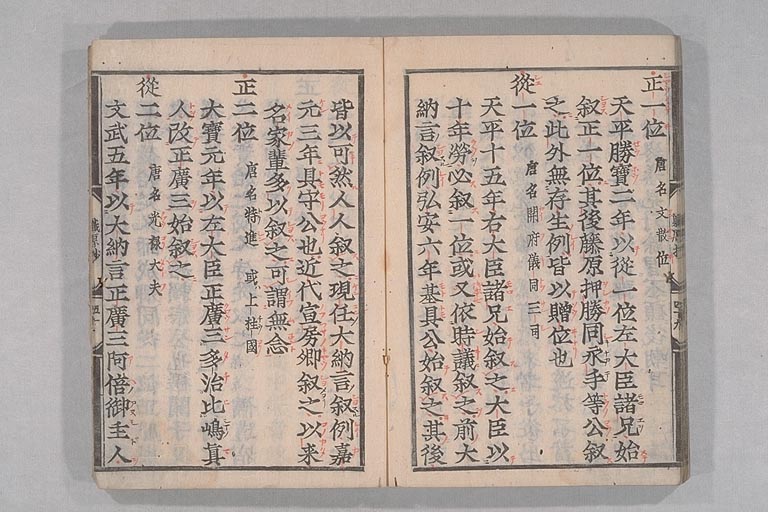 正一位 唐名文散位
天平勝寶二年以從一位左大臣諸兄始
叙正一位其後藤原押勝同永手等公叙
之此外無存生例皆以贈位也
從一位 唐名開府儀同三司
天平十五年右大臣諸兄始叙之大臣以
十年勞必叙一位或又依時議叙之前大
納言叙例弘安六年基具公始叙之其後
皆以可然人人叙之現任大納言叙例嘉
元三年具守公也近代宣房卿叙之以來
名家輩多以叙之可謂無念
正二位 唐名特進 或上柱國
大寶元年以左大臣正廣三多治比嶋真
人改正廣三始叙之
從二位 唐名光祿大夫
文武五年以大納言正廣三阿倍御主人